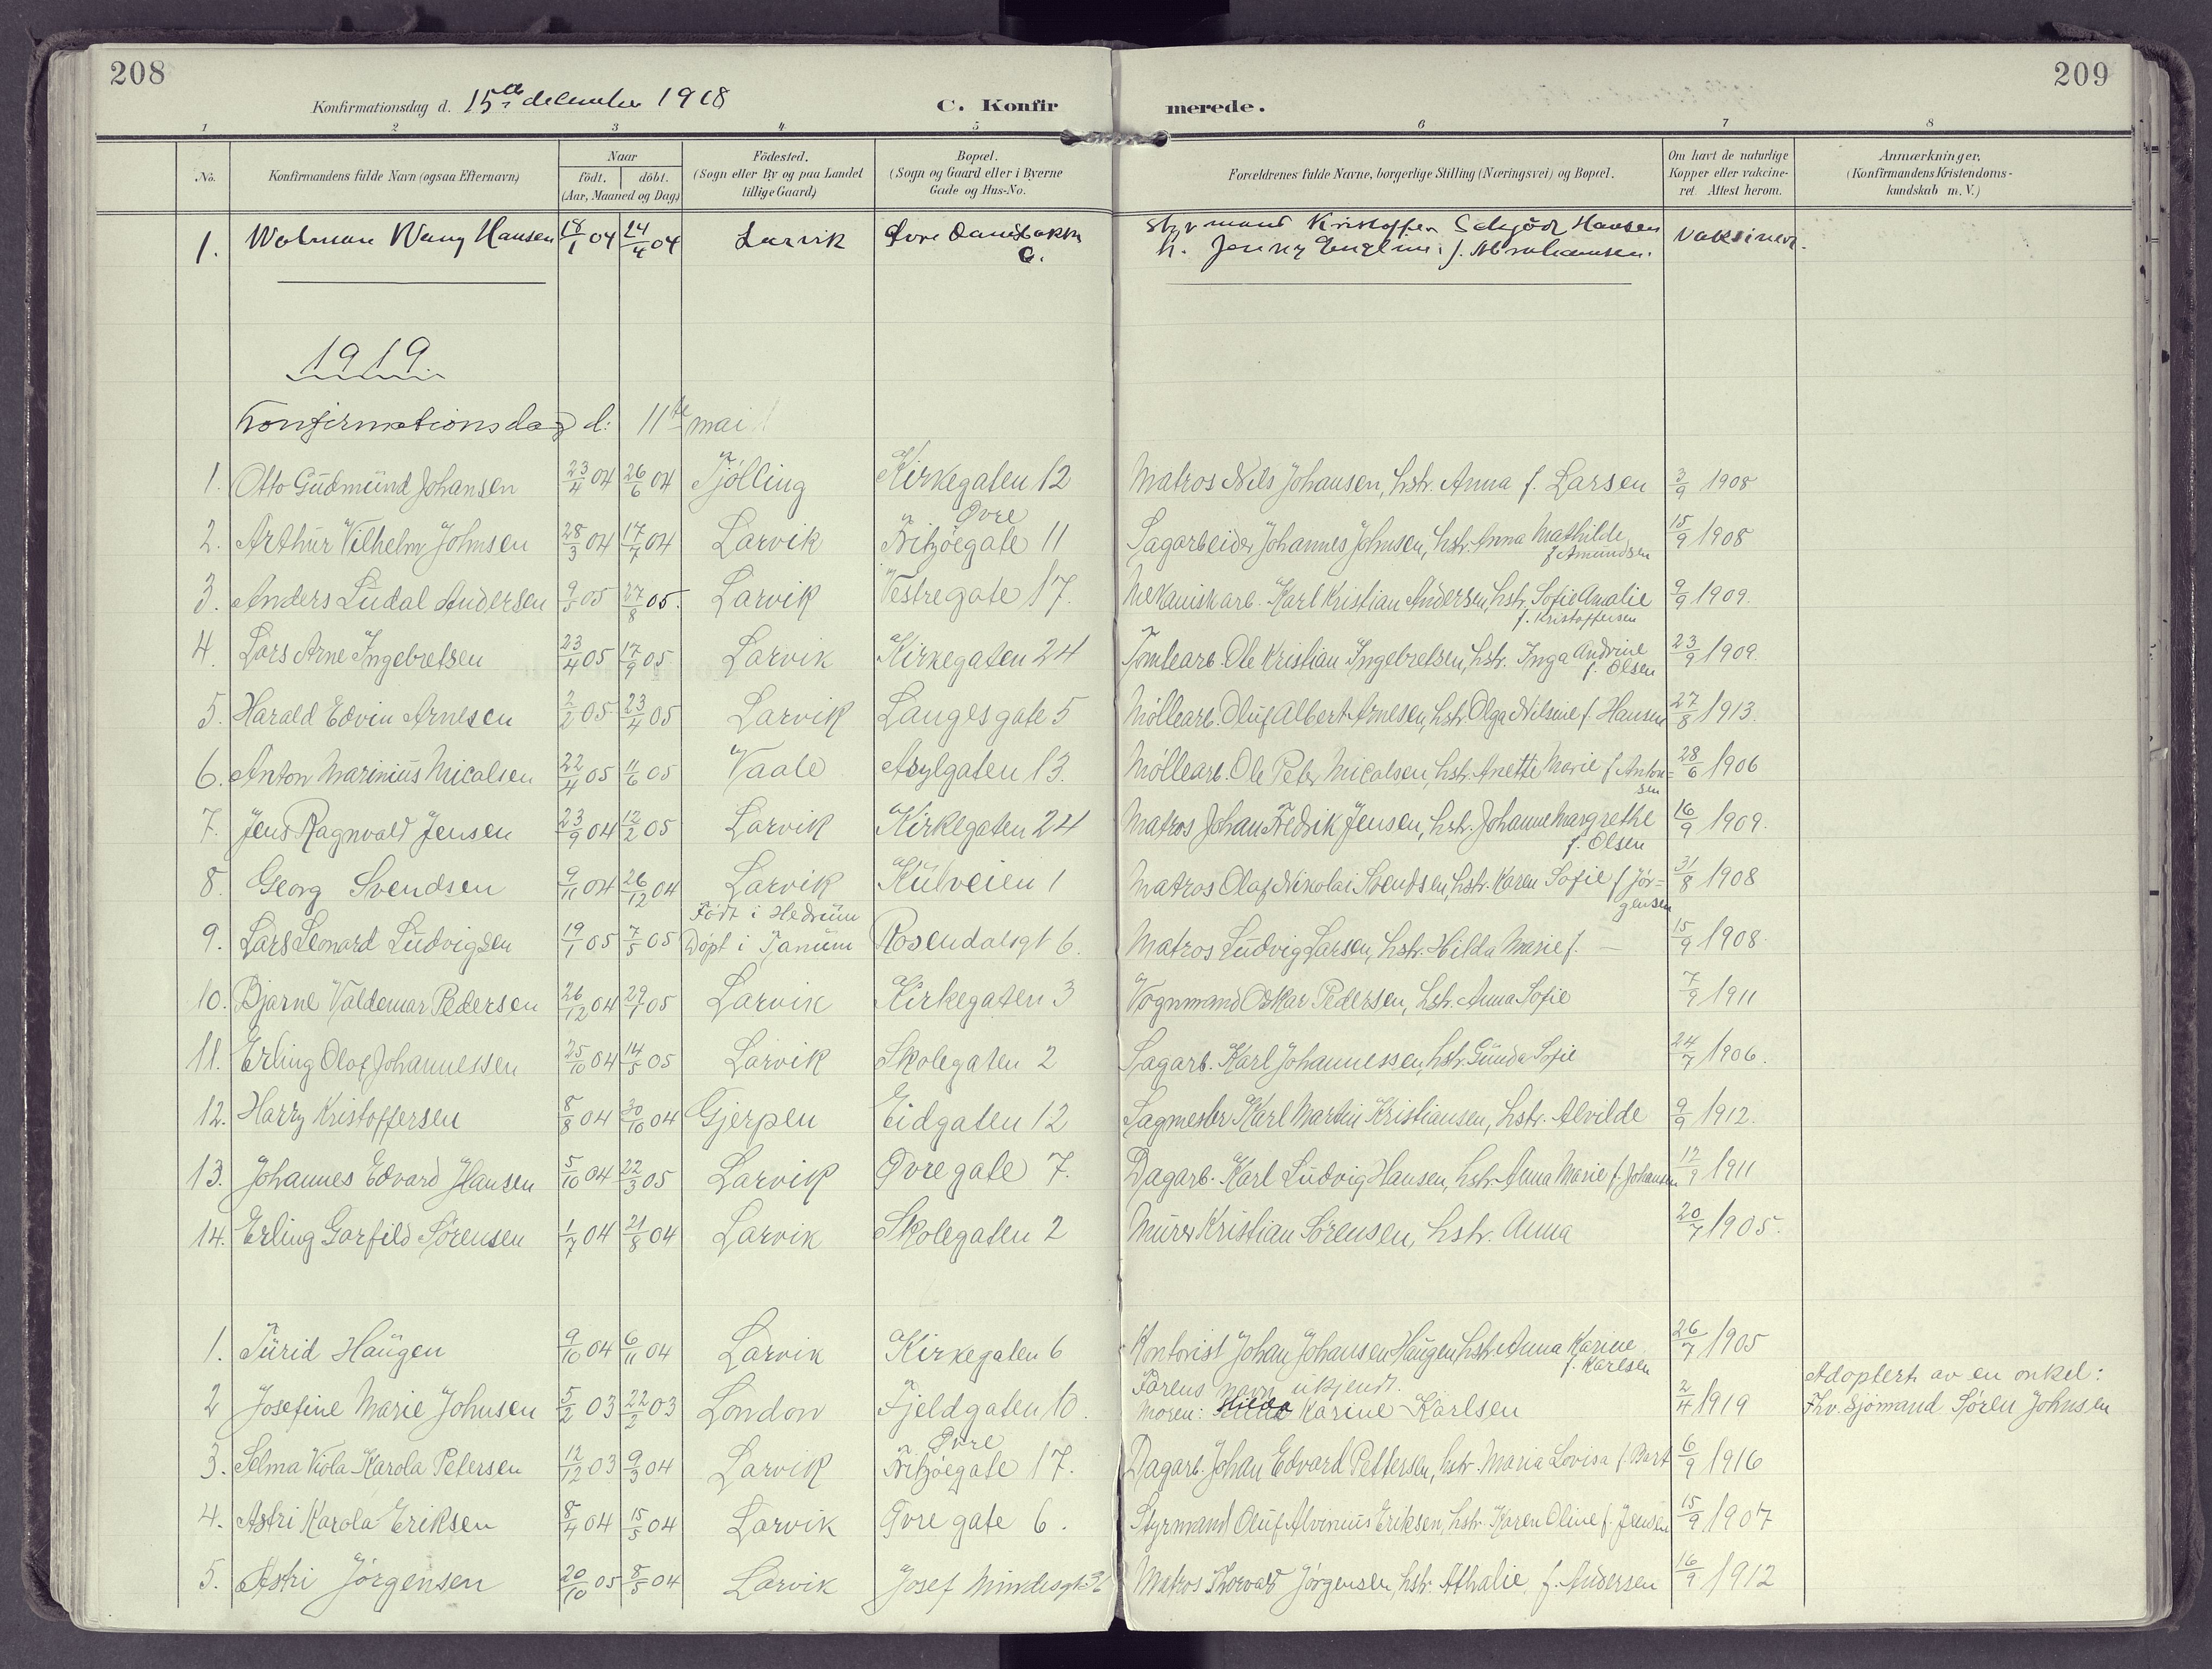 208
209
Konfirmationsdag d. 15de december 1918
C. Konfirmerede.
1 2 3 4 5 6 7 8
No.
Konfirmandens fulde Navn (ogsaa Efternavn)
Naar
födt. döbt.
(Aar, Maaned og Dag)
Födested.
(Sogn eller By og paa Landet
tillige Gaard)
Bopæl.
(Sogn og Gaard eller i Byerne
Gade og Hus-No.
Forældrenes fulde Navne, borgerlige Stilling (Næringsvei) og Bopæl.
Om havt de naturlige
Kopper eller vakcine-
ret. Attest herom.
Anmærkninger,
(Konfirmandens Kristendoms-
kundskab m. V.)
1. Hansen 18/1 04 24/4 04 Larvik Øvre 6. Styrmand Kristoffer Hansen
h. Jenny f. Abrahamsen. Vaksinert.
1919.
Konfirmationsdag d: 11te mai
1. Otto Gudmund Johansen 23/4 04 26/6 04 Tjölling Kirkegaten 12 Matros Nils Johansen, hstr. Anna f. Larsen 3/9 1908
2. Arthur Vilhelm Johnsen 28/3 04 17/7 04 Larvik Øvre Fritzöegate 11 Sagarbeider Johannes Johnsen, hstr. Anna Mathilde
f. Amundsen 15/9 1908
3. Anders Ludal Andersen 9/5 05 27/8 05. Larvik Vestregate 17. Mekaniskarb. Karl Kristian Andersen, hstr. Sofie Amalie
f. Kristoffersen 9/9 1909.
4. Lars Arne Ingebretsen 23/4 05 17/9 05 Larvik Kirkegaten 24 Tomtearb. Ole Kristian Ingebretsen, hstr. Inga Andrine
f. Olsen 23/9 1909.
5. Harald Edvin Arnesen 2/2 05 23/4 05 Larvik Langesgate 5 Möllearb. Oluf Albert Arnesen, hstr. Olga Nilsine f. Hansen 27/8 1913.
6. Anton Marinius Micalsen 22/4 05 11/6 05 Vaale Asylgaten 13. Möllearb. Ole Peter Micalsen, hstr. Anette Marie f. Anton=
sen 28/6 1906
7. Jens Ragnvald Jensen 23/9 04 12/2 05 Larvik Kirkegaten 24 Matros Johan Fredrik Jensen, hstr. Johanne Margrethe
f. Olsen 16/9 1909.
8. Georg Svendsen 9/11 04 26/12 04 Larvik Kulveien 1 Matros Olaf Nikolai Svendsen, hstr. Karen Sofie f. Jör=
gensen 31/8 1908
9. Lars Leonard Ludvigsen 19/1 05 7/5 05 Födt i Hedrum
Döpt i Tanum Rosendalsgt 6. Matros Ludvig Larsen, hstr. Hilda Marie f. — 15/9 1908.
10. Bjarne Valdemar Pedersen 26/12 04 29/1 05 Larvik Kirkegaten 3 Vognmand Oskar Pedersen, hstr. Anna Sofie 7/9 1911
11. Erling Olaf Johannessen 25/10 04 14/5 05 Larvik Skolegaten 2 Sagarb. Karl Johannessen, hstr. Gunda Sofie 24/7 1906.
12. Harry Kristoffersen 8/8 04 30/10 04 Gjerpen Eidgaten 12 Sagmester Karl Martin Kristiansen, hstr. Alvilde 9/9 1912.
13. Johannes Edvard Hansen 5/10 04 22/3 05 Larvik Øvregate 7. Dagarb. Karl Ludvig Hansen, hstr. Anna Marie f. Johansen 12/9 1911
14. Erling Garfild Sörensen 1/7 04 21/8 04 Larvik Skolegaten 2 Murer Kristian Sörensen, hstr. Anna 20/7 1905.
1. Turid Haugen 9/10 04 6/11 04 Larvik Kirkegaten 6 Kontorist Johan Johansen Haugen, hstr. Anna Karine
f. Karlsen 26/7 1905
2 Josefine Marie Johnsen 5/2 03 22/2 03 London Fjeldgaten 10. Farens navn ukjendt.
Moren: Hilda Karine Karlsen 2/4 1919 Adoptert av en onkel:
Fhv. Sjömand Sören Johnsen
3. Selma Viola Karola Petersen 12/12 03 9/3 04 Larvik Øvre Fritzöegate 17. Dagarb. Johan Edvard Pettersen, hstr. Maria Lovisa f. Bart 6/9 1916
4. Astri Karola Eriksen 8/4 04 15/5 04 Larvik Øvre gate 6. Styrmand Oluf Alvinius Eriksen, hstr. Karen Oline f. Jensen 15/9 1907
5. Astri Jörgensen 20/10 05 8/5 04 Larvik Josef Mindesgt. Matros Thorvald Jörgensen, hstr. Athalie f. Andersen 16/9 1912